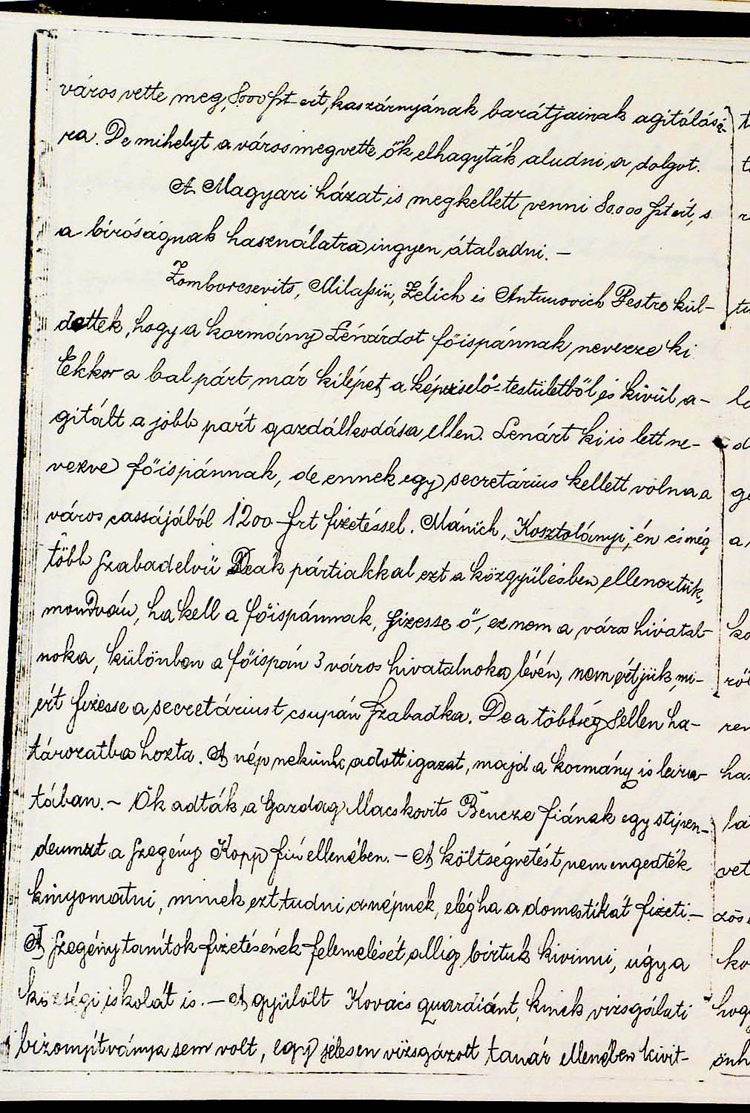 város vette meg, 8000 frt ért, kaszárnyának barátjainak agitálásá-
ra. De mihelyt a város megvette ők elhagyták aludni a dolgot.
A Magyari házat is megkellett venni 80.000 frt ért, s
a biróságnak használatra ingyen átaladni. –
Zomborcsevits, Milassin, Zélich és Antunovich Pestre kül-
dettek, hogy a kormány Lénárdot főispánnak nevezze ki
Ekkor a bal párt már kilépet a képviselő-testületből és kivül, a-
gitált a jobb párt gazdálkodása ellen. Lenárt ki is lett ne-
vezve főispánnak, de ennek egy secretárius kellett volna a
város cassájából 1200 frt fizetéssel. Mánich, Kosztolányi, én és még
több szabadelvü Deák pártiakkal ezt a közgyülésben elleneztük,
mondván, ha kell a főispánnak, fizesse ő, ez nem a város hivatal-
noka, különben a főispán 3 város hivatalnoka lévén, nem értjük, mi-
ért fizesse a secretáriust csupán Szabadka. De a többség ellen ha-
tározatba hozta. A nép nekünk adott igazat, majd a kormány is leira-
tában. – Ők adták a Gazdag Macskovits Bencze fiának egy stipen-
deumat a szegény Kopp fiú ellenében. – A költségvetést nem engedték
kinyomatni, minek ezt tudni a népnek, elég ha a domestikát fizeti. –
A szegény tanítok fizetésének felemelését allig birtuk kivinni, ugy a
községi iskolát is. – A gyülölt Kovács quardiánt, kinek vizsgálati
bizonyítványa sem volt, egy jelesen vizsgázott tanár ellenében kivit-